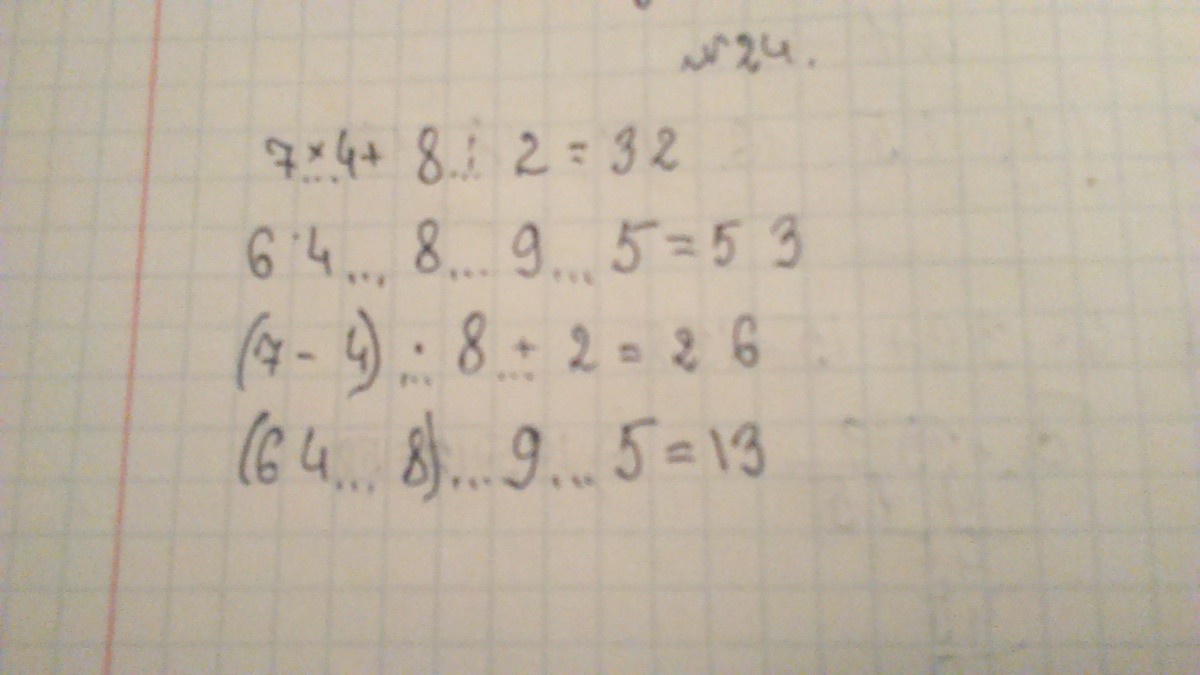 №24.
7×4+ 8...: 2 = 32
6·4... 8... 9... 5=5 3
(7- 4) ...· 8 ...+ 2 = 2 6
(6 4... 8)... 9... 5=13